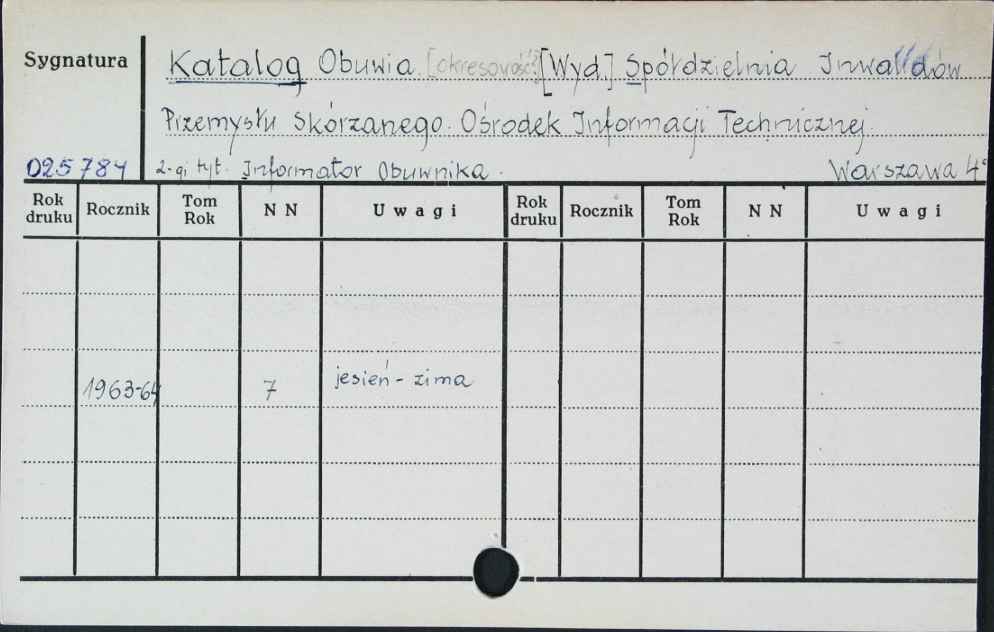 Sygnatura
Katalog Obuwia. [okresowość?] [Wyd.] Spółdzielnia Inwalidów
Przemysłu Skórzanego. Ośrodek Informacji Technicznej.
025784 2-gi tyt. Informator Obuwnika. Warszawa 4°
Rok druku Rocznik Tom Rok N N Uwagi Rok druku Rocznik Tom Rok N N Uwagi
1963-64 7 jesień - zima